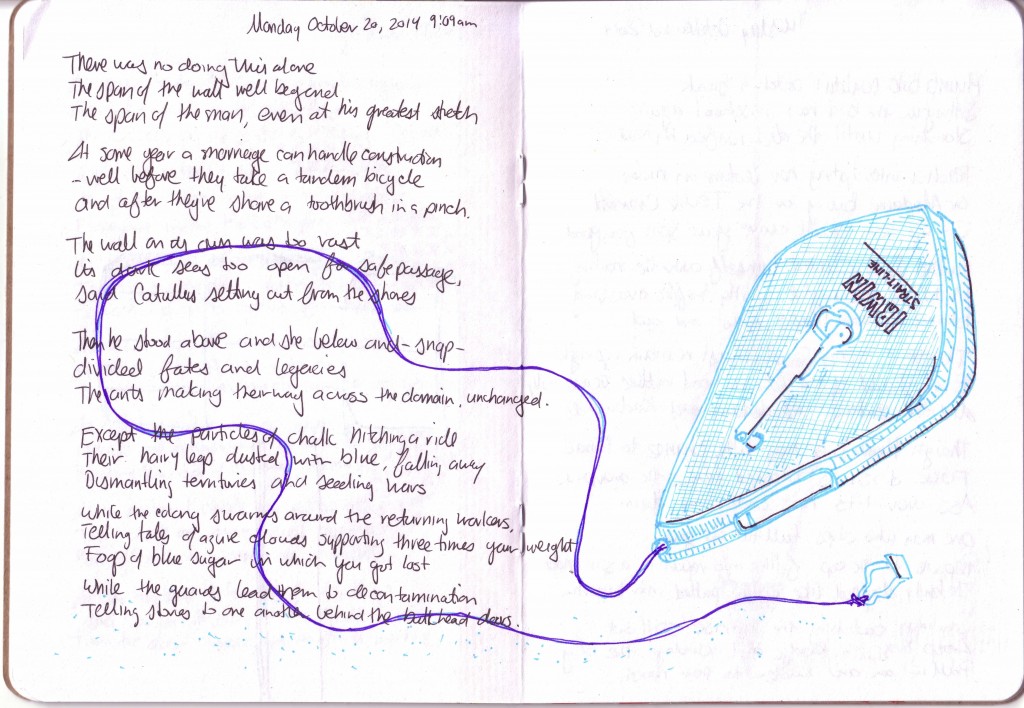 Monday October 20, 2014 9:09am
There was no doing this alone
The span of the wall well beyond
The span of the man, even at his greatest stretch
At some year a marriage can handle construction
- well before they take a tandem bicycle
and after they've share a toothbrush in a pinch.
The wall on its own was too vast
Its dark seas too open for safe passage,
said Catullus setting out from the shores
Then he stood above and she below and - snap -
divided fates and legacies
The ants making their way across the domain, unchanged.
Except the particles of chalk hitching a ride
Their hairy legs dusted with blue, falling away
Dismantling territories and seeding wars
While the colony swarms around the returning workers,
Telling tales of azure clouds supporting three times your weight
Fog of blue sugar in which you got lost
While the guards lead them to decontamination
Telling stories to one another behind the bulkhead doors.
IRWIN
STRAIT-LINE